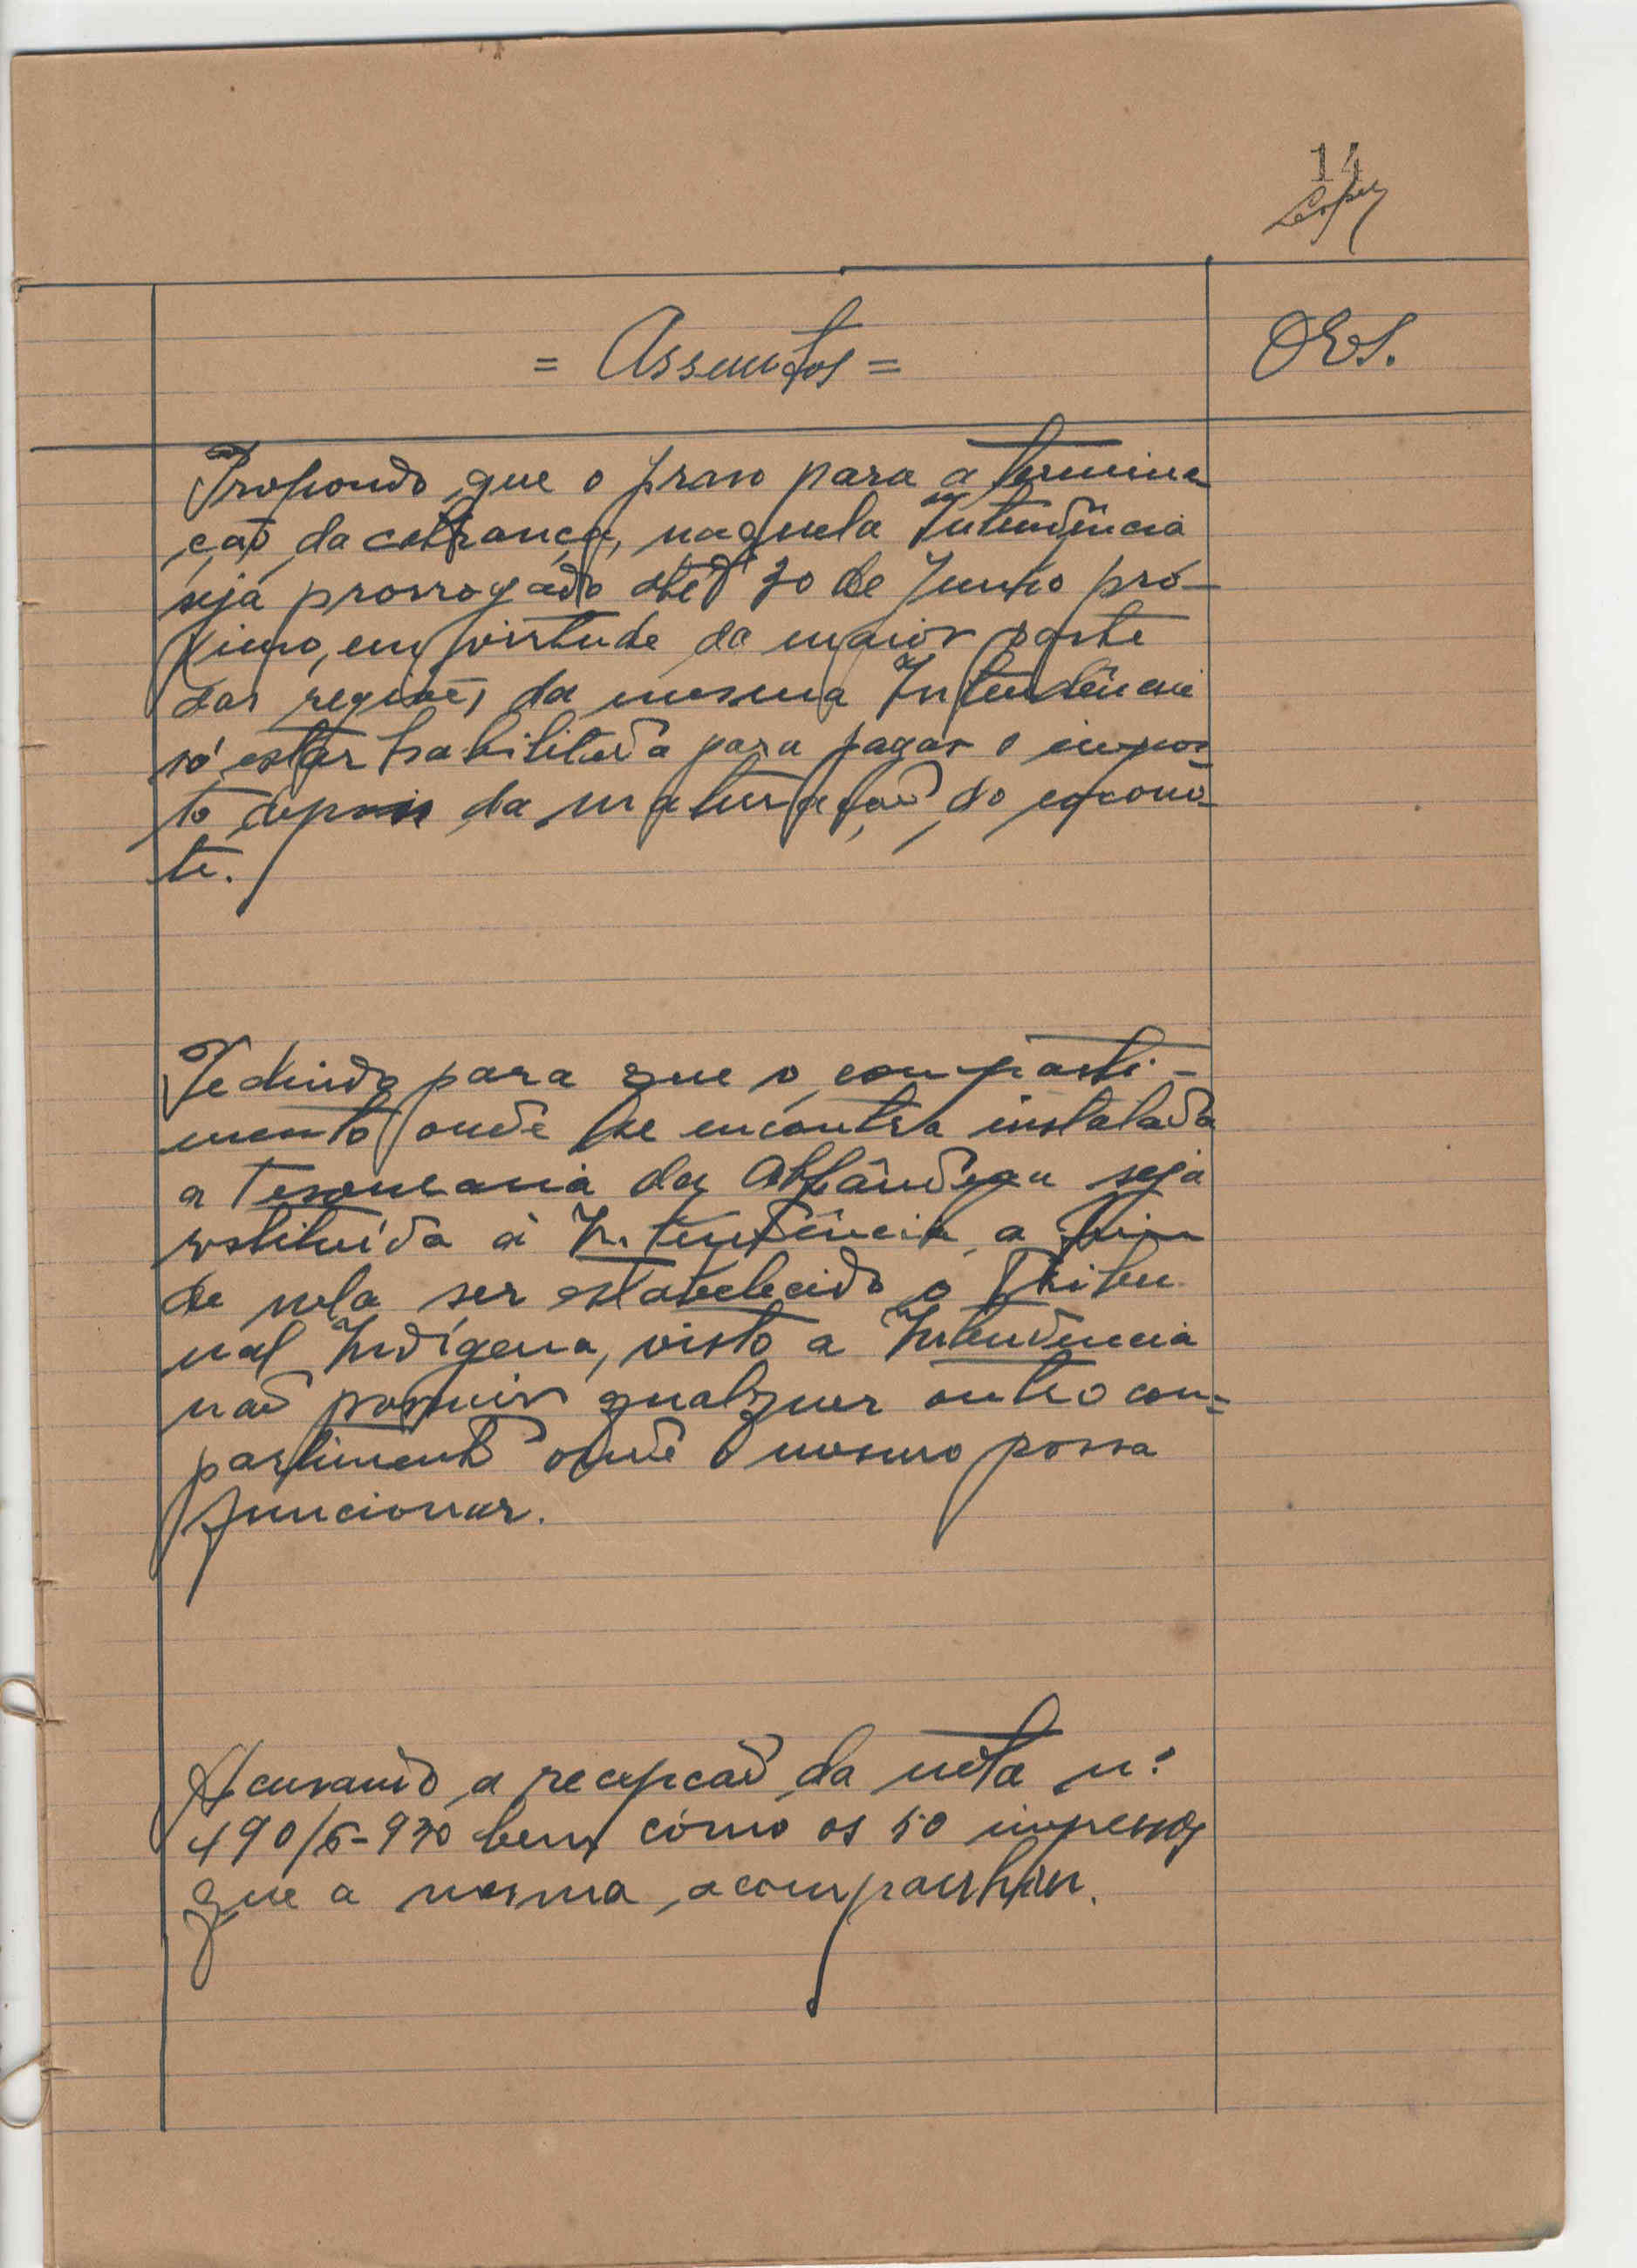 14
Lopes
= Assuntos =
OBS.
Propondo que o praso para a termina-
ção da cobrança, naquela Intendência
seja prorrogado até 30 de Junho pró-
ximo, em virtude da maior parte
das regiões da mesma Intendência
só estar habilitada para pagar o impos-
to depois da maturação do coconó-
te.
Pedindo para que o comparti-
mento onde se encontra instalada
a Tesouraria da Alfândega seja
restituída à Intendência, a fim
de nela ser estabelecido o Tribu
nal Indígena, visto a Intendência
não possuir qualquer outro com=
partimento onde o mesmo possa
funcionar.
Acusando a recepção da nota n.º
490/5-930 bem como os 50 impressos
que a mesma acompanhou.